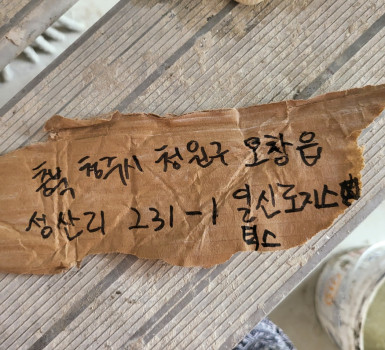 충북 청주시 청원구 오창읍
성산리 231-1 열신로지스
틱스